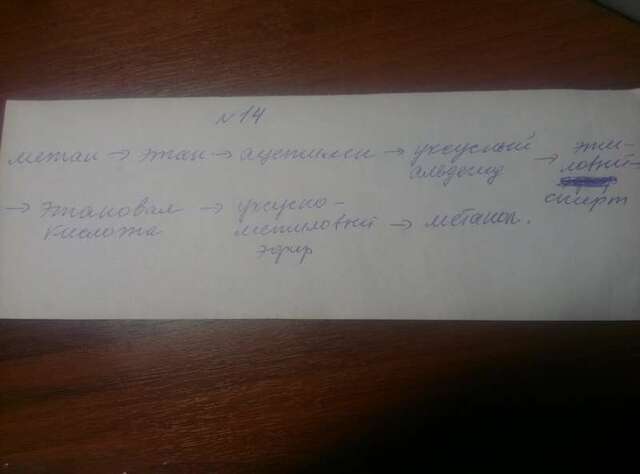 № 14
метан → этан → ацетилен → уксусный альдегид → этиловый спирт
→ этановая кислота → уксусно-метиловый эфир → метанол.